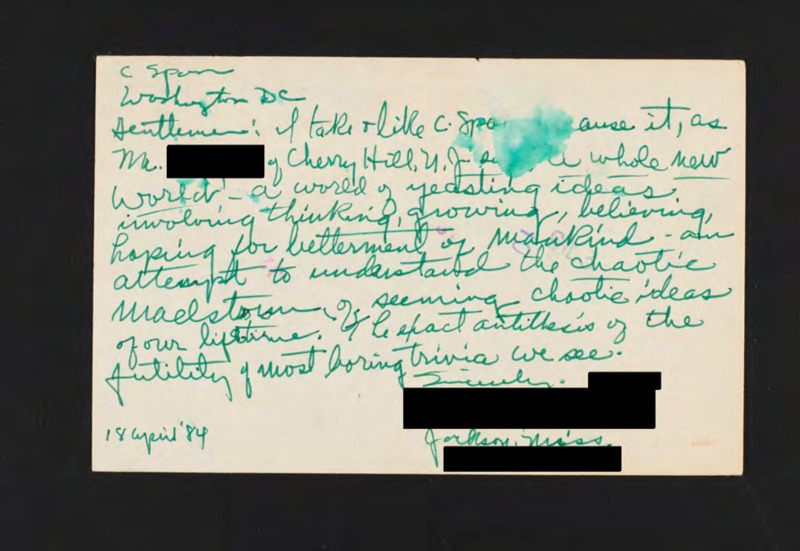 C Span
Washington DC
Gentlemen: I take & like C. Spa ause it, as
Mr. of Cherry Hill, N.J. whole new
world - a world of yeasting ideas
involving thinking, growing, believing,
hoping for betterment of mankind - an
attempt to understand the chaotic
maelstorm of seeming chaotic ideas
of our lifetime. The exact antithesis of the
futility of most boring trivia we see.
Sincerely.
18 April '84
Jackson, Miss.